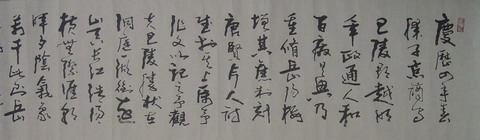 慶歷四年春
滕子京謫守
巴陵郡越明
年政通人和
百廢具興乃
重修岳陽樓
增其舊制刻
唐賢今人詩
賦於其上屬予
作文以記之予觀
夫巴陵勝狀在
洞庭一湖銜遠
山吞長江浩浩湯湯
橫無際涯朝
暉夕陰氣象
萬千此則岳